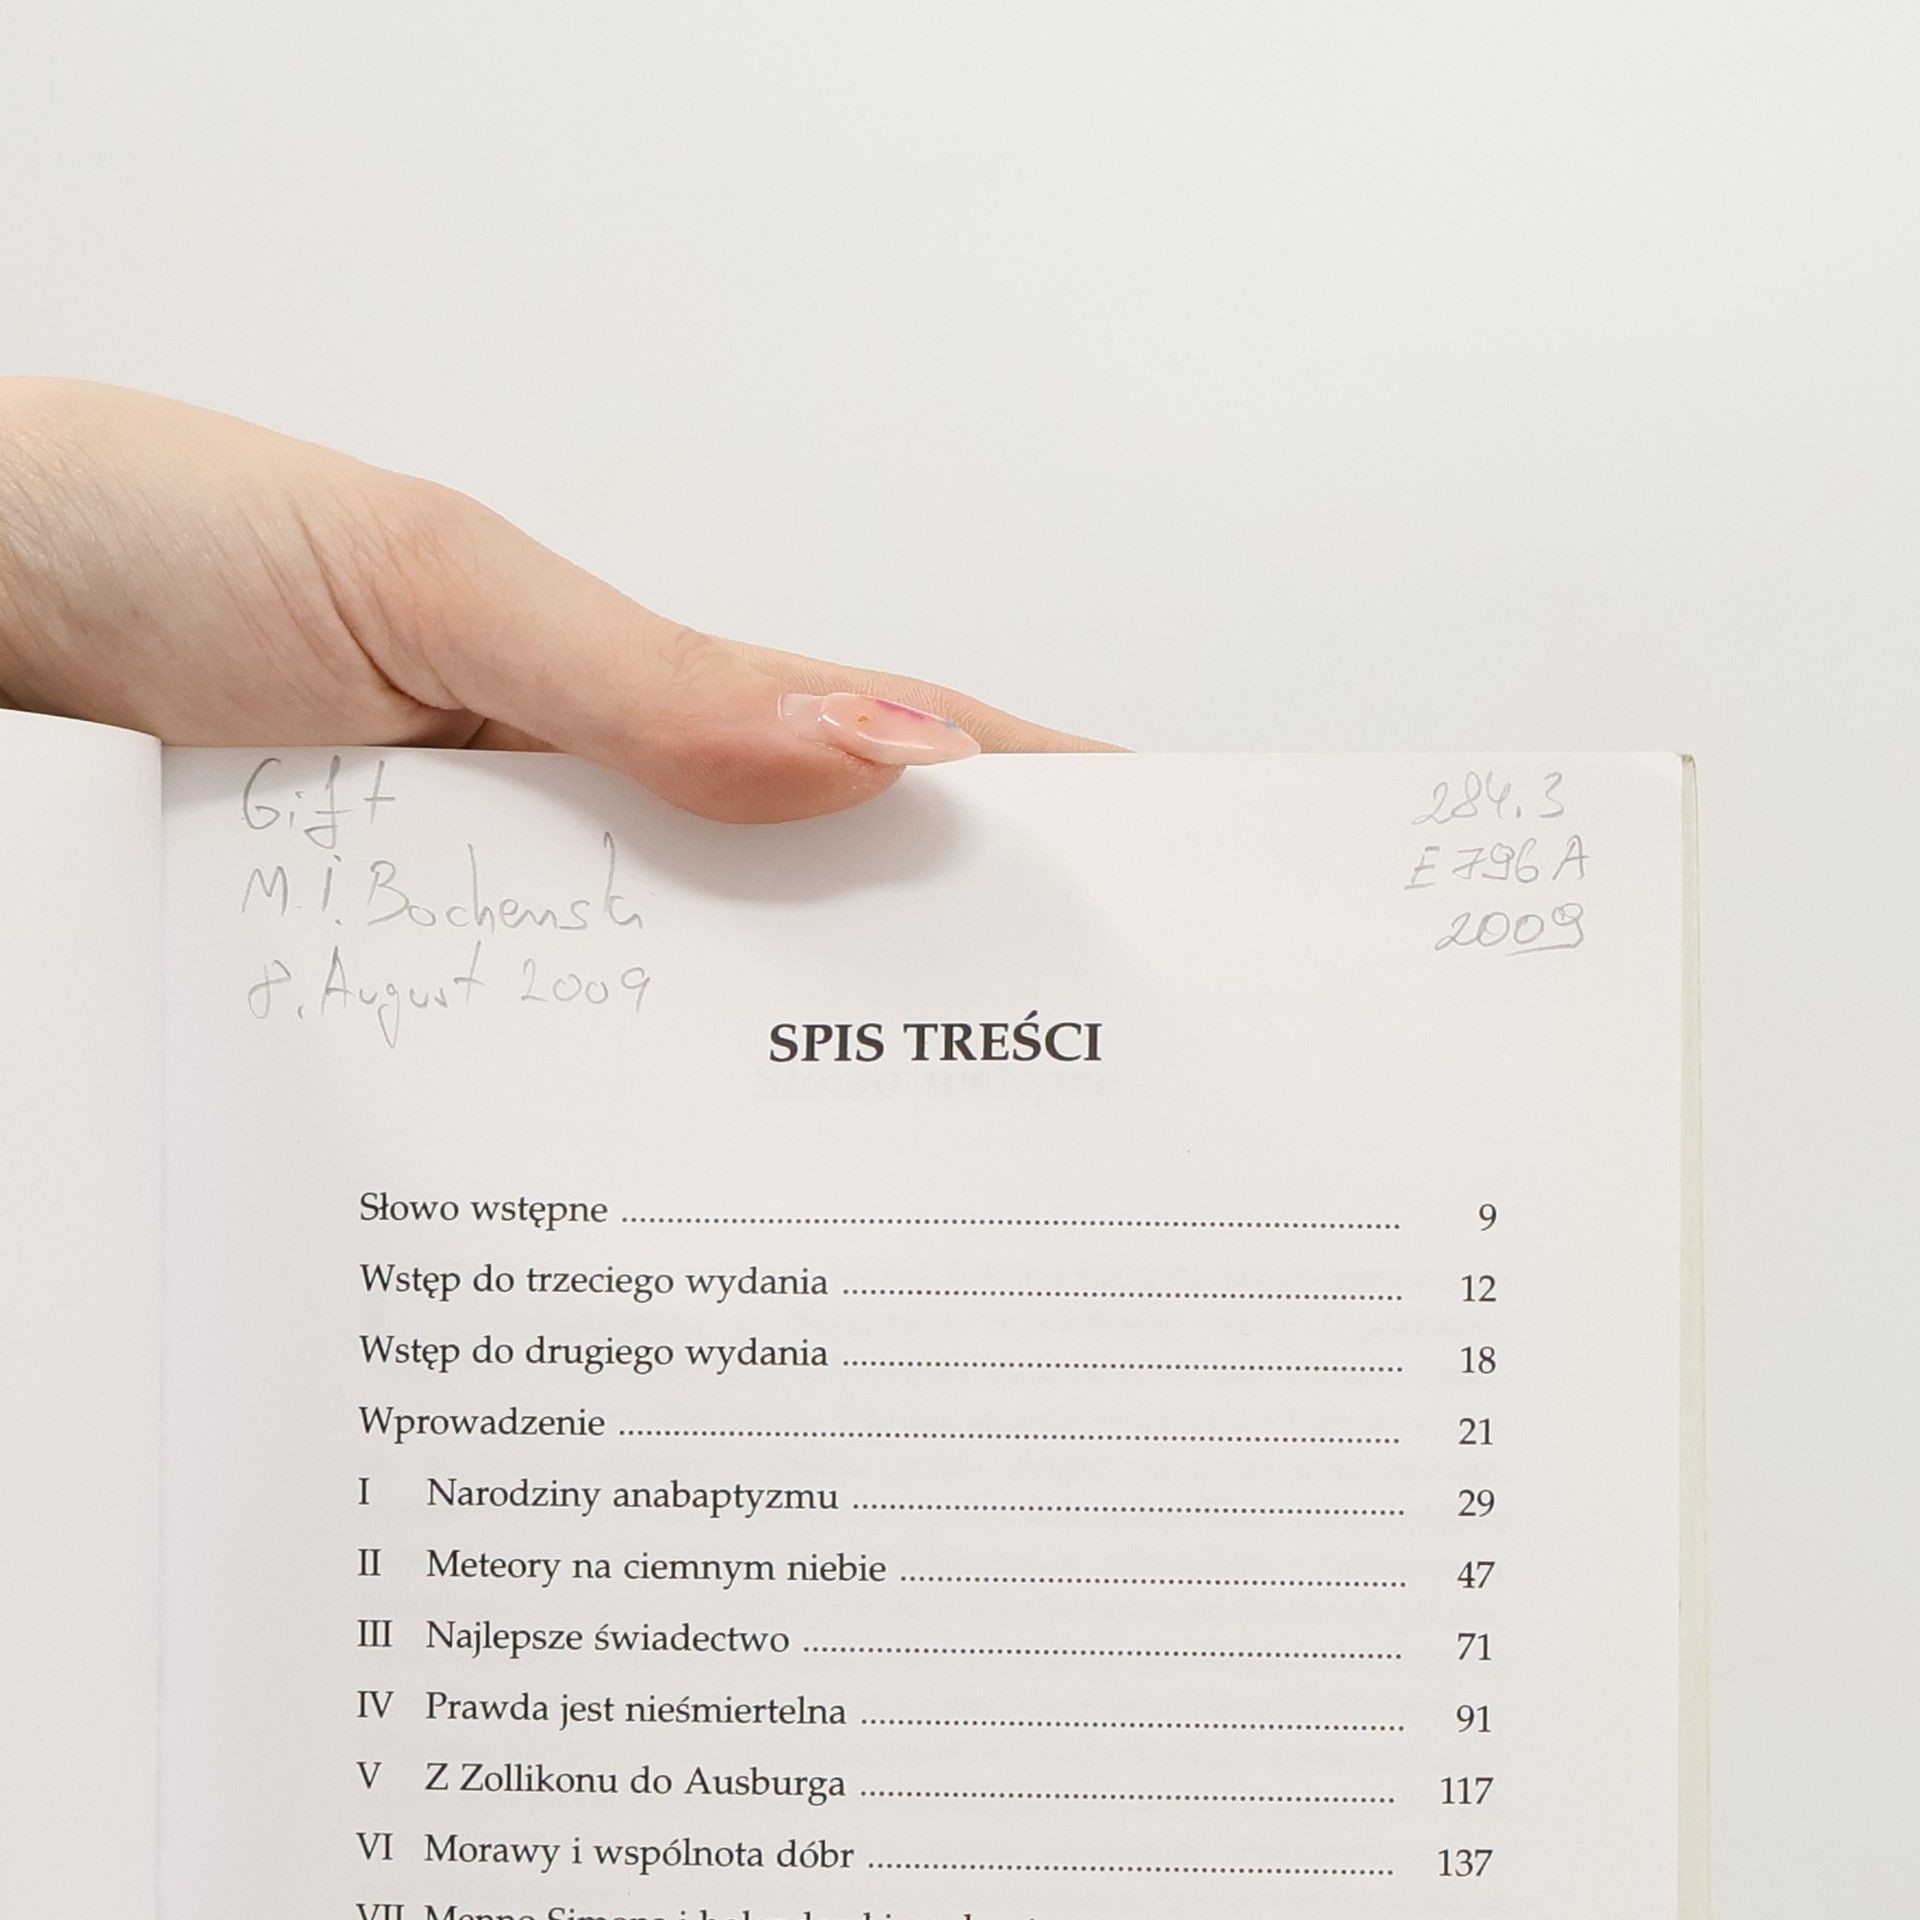 Gift
M.I. Bochenski
8. August 2009
284.3
E 796 A
2009
SPIS TREŚCI
Słowo wstępne ........ 9
Wstęp do trzeciego wydania ........ 12
Wstęp do drugiego wydania ........ 18
Wprowadzenie ........ 21
I Narodziny anabaptyzmu ........ 29
II Meteory na ciemnym niebie ........ 47
III Najlepsze świadectwo ........ 71
IV Prawda jest nieśmiertelna ........ 91
V Z Zollikonu do Ausburga ........ 117
VI Morawy i wspólnota dóbr ........ 137
VII Menno Simons i